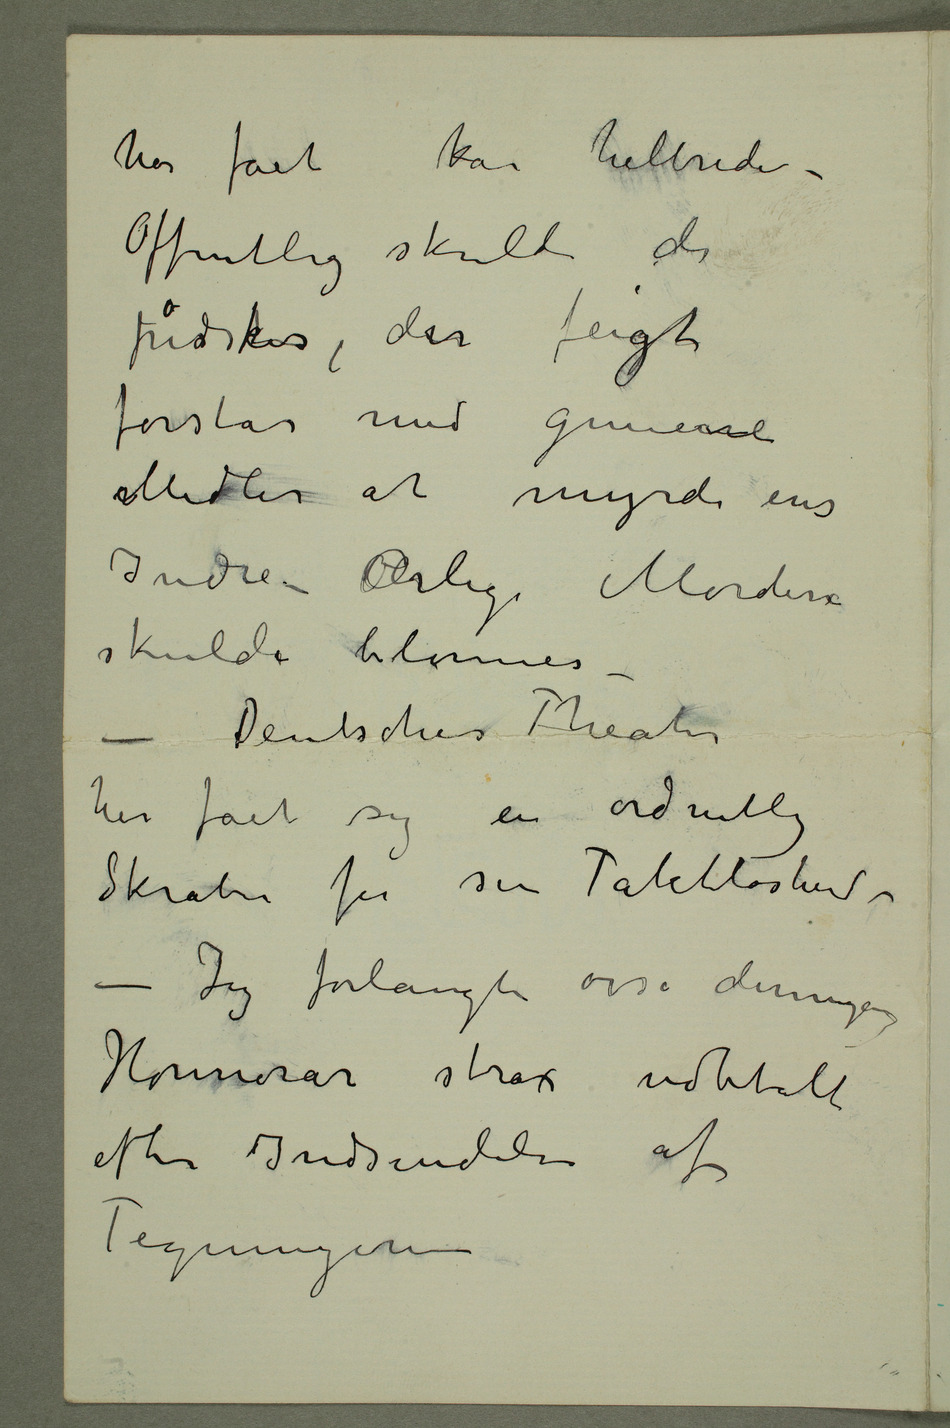 har fået kan helbrede –
Offentlig skulde de
piidskes, der feigt
forstår med gemene
Midler at myrde ens
Indre – Ærlige Mordere
skulde belønnes –
— Deutsches Theater
har fået sig en ordentlig
Skrabe for sin Taktløshed –
— Jeg forlangte osse dennegang
Honnorar strax udbetalt
efter Indsendelse af
Tegningerne